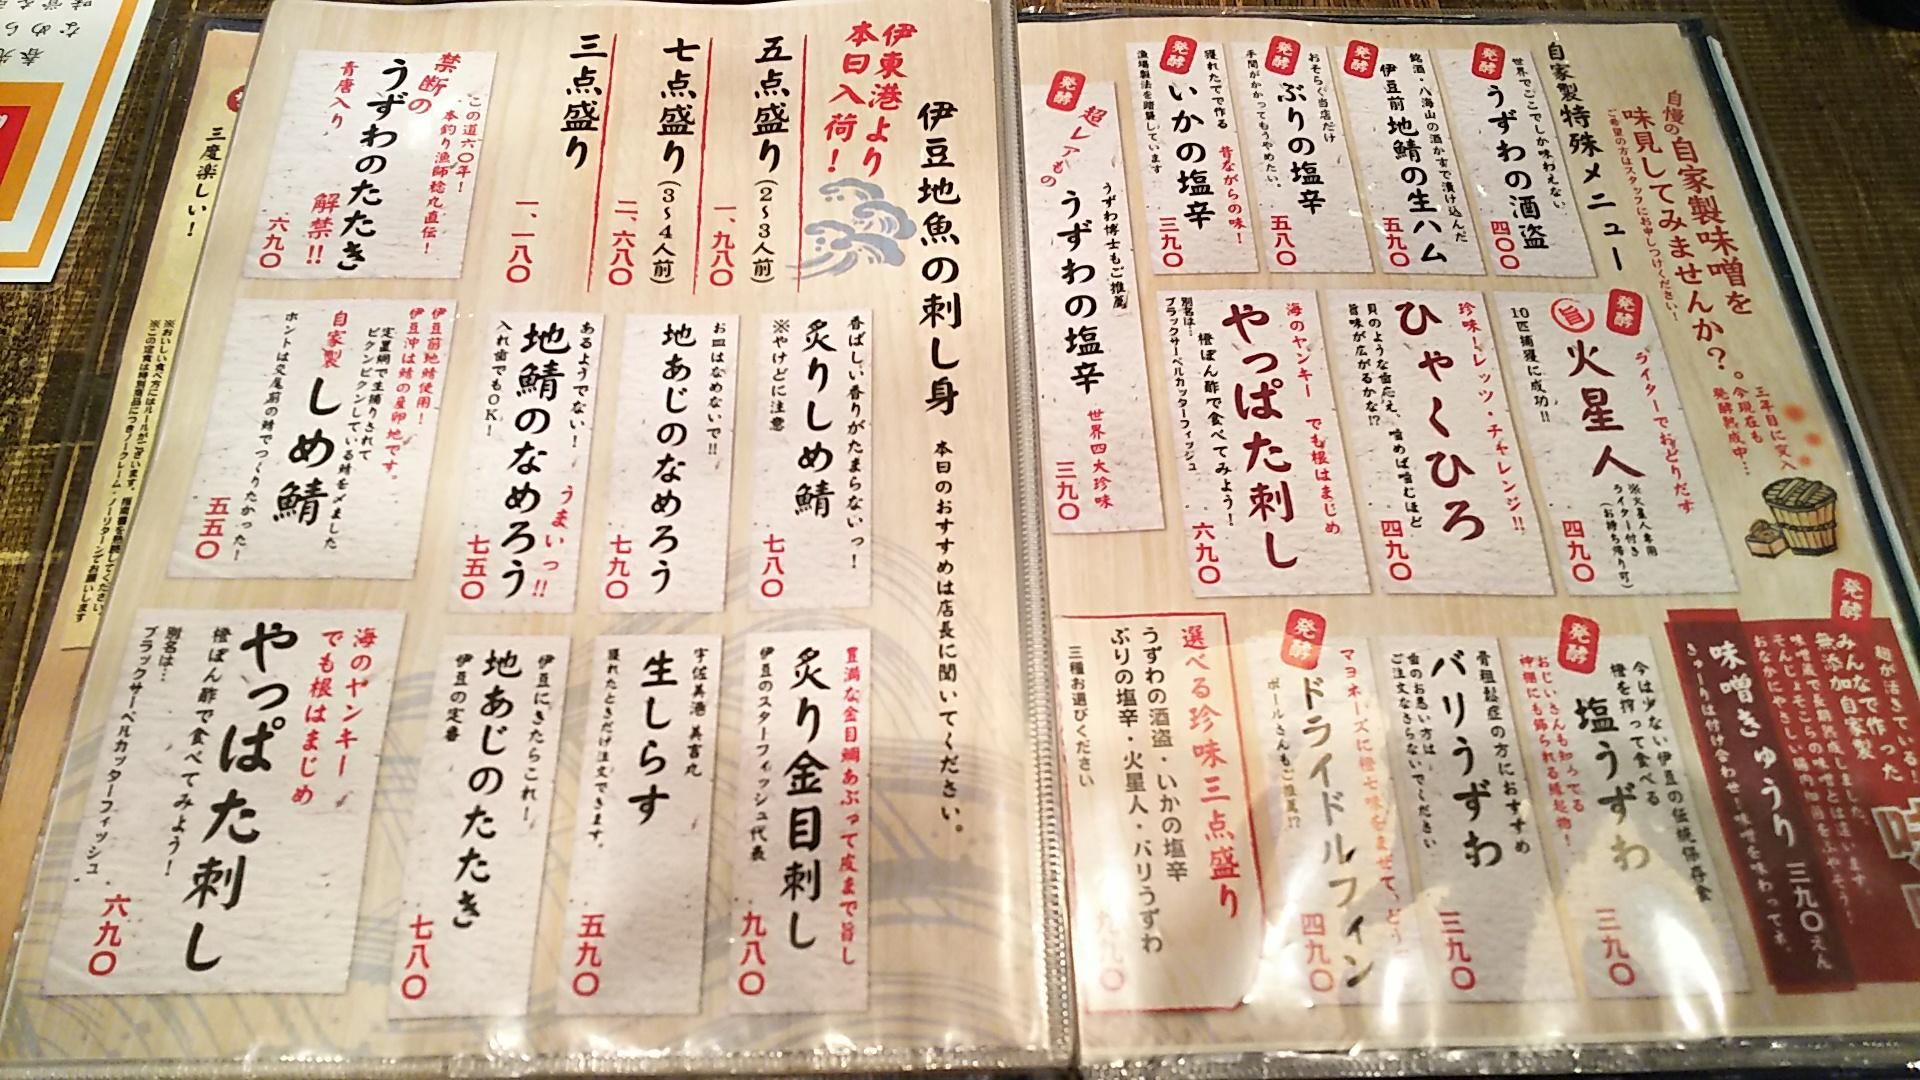 自慢の自家製味噌を
味見してみませんか?。
ご希望の方はスタッフにお申しつけください!
三年目に突入
今現在も
発酵熟成中…
自家製特殊メニュー
発酵
世界でここでしか味わえない
うずわの酒盗
四〇〇
発酵
銘酒・八海山の酒かすで漬け込んだ
伊豆前 地鯖の生ハム
五九〇
発酵
おそらく当店だけ
ぶりの塩辛
手間がかかってもうやめたい。
五八〇
発酵
獲れたてで作る 昔ながらの味!
いかの塩辛
漁場製法を踏襲しています
三九〇
発酵
超レアもの
うずわ博士もご推薦
うずわの塩辛
世界四大珍味
三九〇
発酵
ライターでおどりだす
旨 火星人
※火星人専用
ライター付き
(お持ち帰り可)
10匹捕獲に成功!!
四九〇
珍味・レッツ・チャレンジ!!
ひゃくひろ
貝のような歯応え、噛めば噛むほど
旨味が広がるかな!?
四九〇
海のヤンキー でも根はまじめ
やっぱた刺し
橙ぽん酢で食べてみよう!
別名は…
ブラックサーベルカッターフィッシュ
六九〇
発酵
麹が活きている!
みんなで作った
無添加自家製
味噌蔵で長期熟成しました。
そんじょそこらの味噌とは違います。
おなかにやさしい腸内細菌をふやそう!
味噌きゅうり 三九〇えん
きゅーりは付け合わせ!味噌を味わって下さい
発酵
今は少ない伊豆の伝統保存食
橙を搾って食べる
塩うずわ
おじいさんも知ってる
神棚にも飾られる縁起物!
三九〇
骨粗鬆症の方におすすめ
バリうずわ
歯のお悪い方は
ご注文なさらないでください
三九〇
発酵
マヨネーズに橙七味をまぜて、どう
ドライドルフィン
ポールさんもご推薦!?
四九〇
選べる珍味三点盛り
うずわの酒盗・いかの塩辛
ぶりの塩辛・火星人・バリうずわ
三種お選びください
伊豆地魚の刺し身
本日のおすすめは店長に聞いてください。
伊東港より
本日入荷!
五点盛り(2~3人前)
一、九八〇
七点盛り(3~4人前)
二、六八〇
三点盛り
一、一八〇
この道六〇年!
本釣り漁師稔丸直伝!
禁断の
うずわのたたき
青唐入り
解禁!!
六九〇
香ばしい香りがたまらないっ!
炙りしめ鯖
※やけどに注意
七八〇
お皿はなめないで!!
地あじのなめろう
七九〇
あるようでない!
うまいっ!!
地鯖のなめろう
入れ歯でもOK!
七五〇
伊豆前地鯖使用!
伊豆沖は鯖の産卵地です。
定置網で生捕りされて
ピクンピクンしている鯖を〆ました
自家製 しめ鯖
ホントは交尾前の鯖でつくりたかった!
五五〇
豊満な金目鯛あぶって皮まで旨し
炙り金目刺し
伊豆のスターフィッシュ代表
九八〇
宇佐美港 美吉丸
生しらす
獲れたときだけ注文できます。
五九〇
伊豆にきたらこれ!
地あじのたたき
伊豆の定番
七八〇
海のヤンキー
でも根はまじめ
やっぱた刺し
橙ぽん酢で食べてみよう!
別名は…
ブラックサーベルカッターフィッシュ
六九〇
三度楽しい!